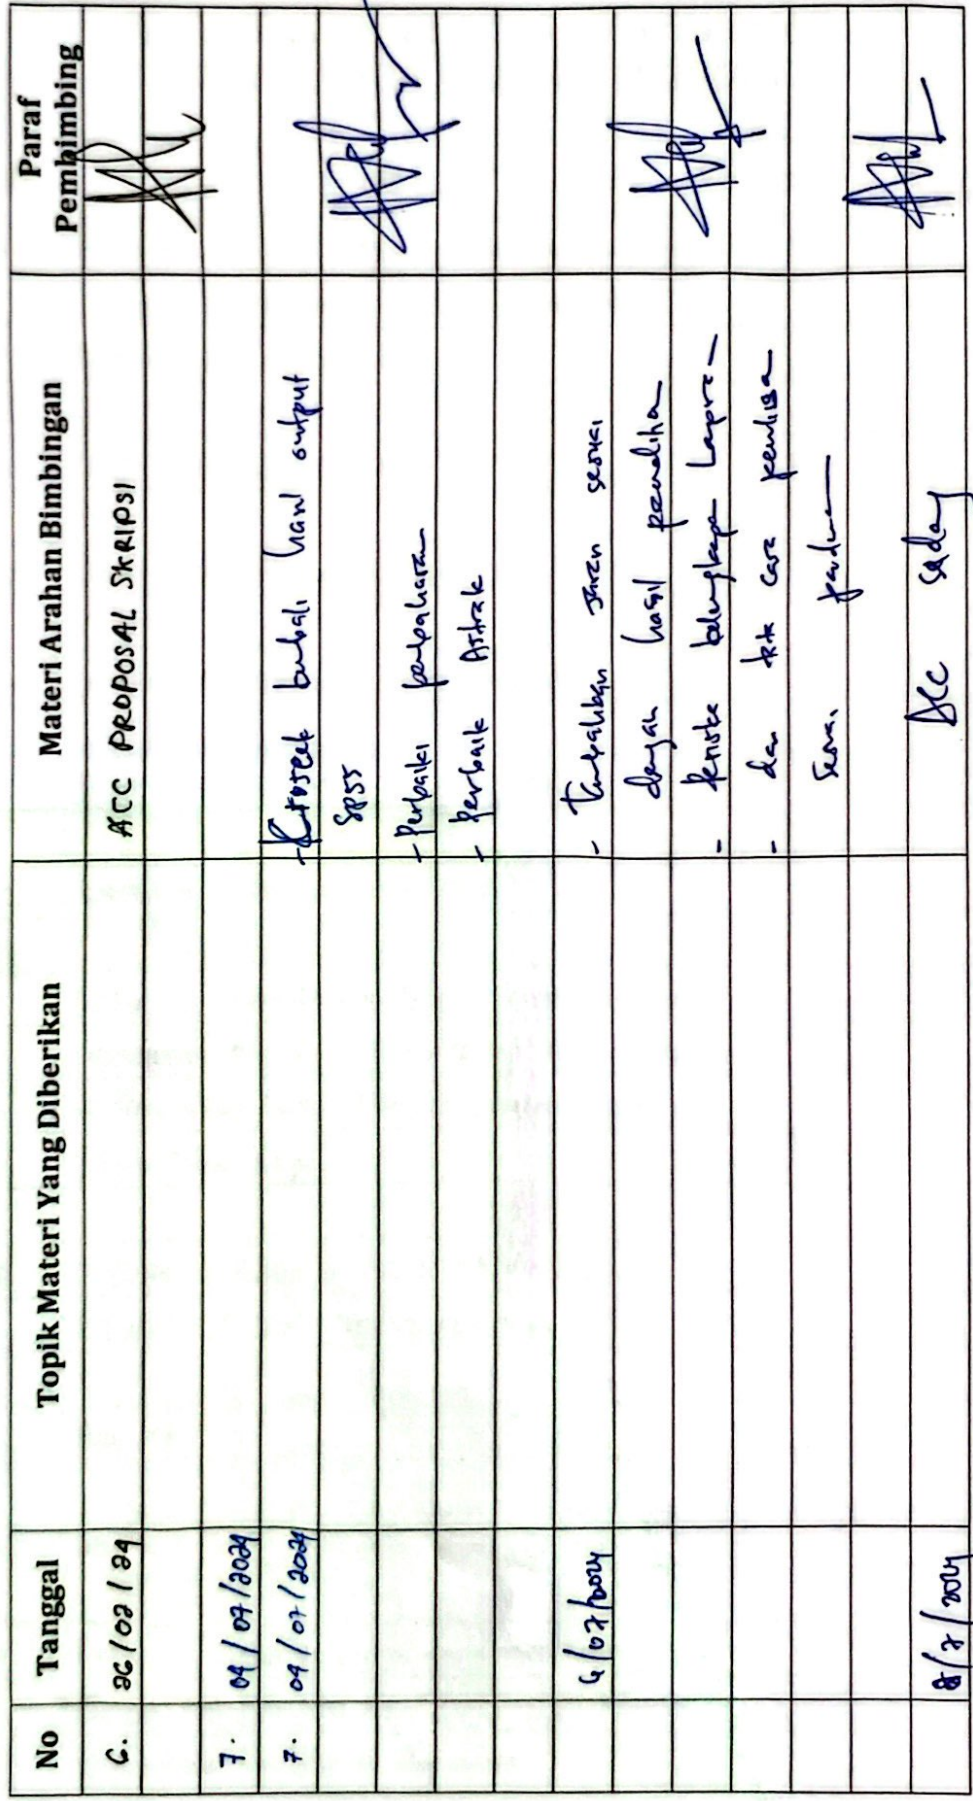 No Tanggal Topik Materi Yang Diberikan Materi Arahan Bimbingan Paraf Pembimbing
6. 26/02/24 ACC PROPOSAL SKRIPSI
7. 04/07/2024
7. 04/07/2024 - Kroscek kembali hasil output
SPSS
- Perbaiki pembahasan
- Perbaik Abstrak
- Tambahkan saran sesuai
dengan hasil penelitian
- kelengkapan
- dan cara penulisa
sesuai
8/7/2024 ACC sidang